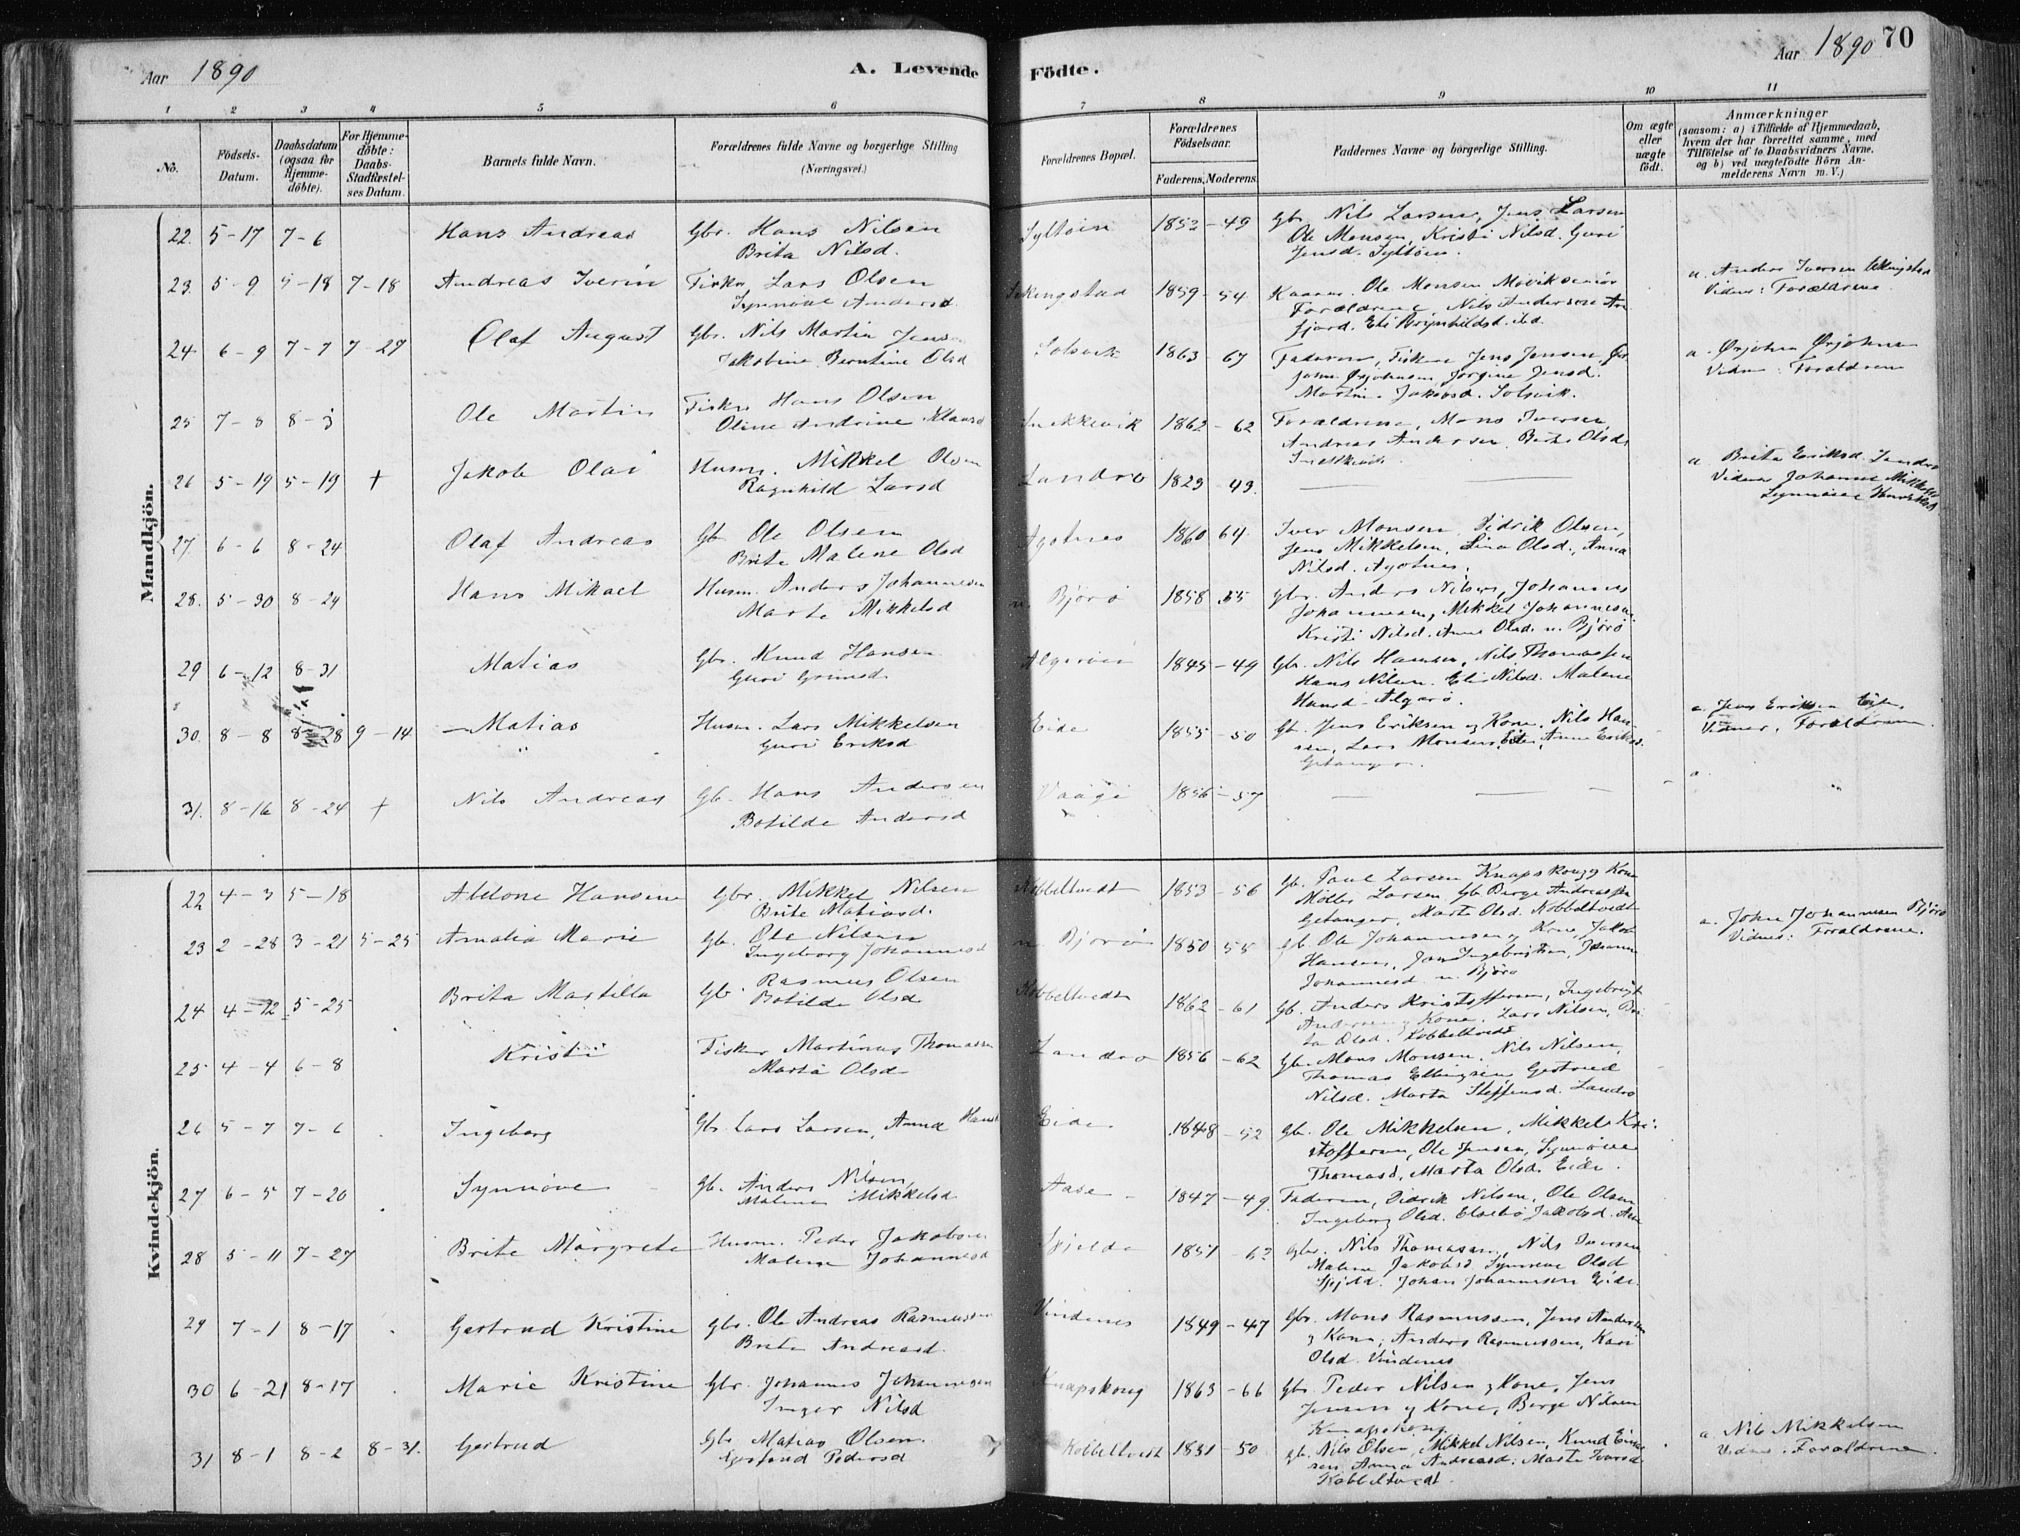 Aar 1890
A. Levende Födte.
Aar 1890
70
1 2 3 4 5 6 7 8 9 10 11
No.
Födsels-Datum.
Daabsdatum (ogsaa for Hjemme-döbte).
For Hjemme-döbte: Daabs-Stadfæstel-ses Datum.
Barnets fulde Navn.
Forældrenes fulde Navne og borgerlige Stilling (Næringsvei.)
Forældrenes Bopæl.
Forældrenes Födselsaar.
Faderens. Moderens.
Faddernes Navne og borgerlige Stilling.
Om ægte eller uægte födt.
Anmærkninger (saasom: a) i Tilfælde af Hjemmedaab, hvem der har forrettet samme, med Tilföielse af to Daabsvidners Navne, og b) ved uægtefödte Börn Anmelderens Navn m. V.)
Mandkjön.
22. 5-17 7-6 Hans Andreas Gbr. Hans Nilsen
Brita Nilsd. Syltøin 1852-49 Gbr. Nils Larsen, Jens Larsen
Ole Monsen, Kristi Nilsd. Guri
Jensd. Syltøin.
23. 5-9 5-18 7-18 Andreas Iverin Fisker Lars Olsen
Synnöve Andersd. 1859-54 Ole Monsen
Forældrene, Nils Andersen
fjord. Eli Brynhildsd. ibd.
a. Anders Iversen
Vidner: Forældrene
24. 6-9 7-7 7-27 Olaf August Gbr. Nils Martin Jens
Jakobine Berntine Olsd Solsvik 1863 67 Faderen, Fisker Jens Jensen, Ør-
john Ørjohnsen, Jorgine Jensd.
Martin. Jakobsd. Solsvik.
a. Ørjohn Ørjohnsen
Vidner: Forældrene
25 7-8 8-3 Ole Martin Fisker Hans Olsen
Oline Andrine Klausd Snekkevik 1862-62 Forældrene, Mons Iversen
Andreas Andersen, Brita Olsd.
Snekkevik.
26 5-19 5-19 + Jakob Olai Husm. Mikkel Olsen
Ragnhild Larsd Landro 1829-43.
a. Brita Eriksd. Landro
Vidner Johannes Mikkelse
Synnöve
27 6-6 8-24 Olaf Andreas Gbr Ole Olsen
Brite Malene Olsd Agotnes 1860 64 Iver Monsen, Didrik Olsen,
Jens Mikkelsen, Sina Olsd., Anna
Nilsd. Agotnes.
28. 5-30 8-24 Hans Mikael Husm. Anders Johannesen
Marta Mikkelsd n. Björö 1858 55 Gbr. Anders Nilsen, Johannes
Johannesen, Mikkel Johannesen
Kristi Nilsd. Anne Olsd. n. Björö
29 6-12 8-31 Matias Gbr. Knud Hansen
Guri Algeröin 1845-49 Gbr. Nils Hansen, Nils Thomassen
Hans Nilsen. Eli Nilsd. Malene
Algerö.
30. 8-8 8-28 9-14 Matias Husm. Lars Mikkelsen
Guri Eriksd Eide 1855-50 Gb. Jens Eriksen og Kone, Nils Han-
sen, Lars Monsen, Eide, Anne Eriksd.
Getanger.
a. Jens Eriksen Eide,
Vidner, Forældrene
31. 8-16 8-24 + Nils Andreas Gb. Hans Andersen
Botilde Andersd Vaage 1856-57
a. "
Kvindekjön.
22 4-3 5-18 Aldone Hansine Gbr. Mikkel Nilsen
Brite Matiasd. Kobbeltvedt 1853-56 Gb. Paul Larsen Knapskoug og Kone
Möller Larsen, Gb Berge Andreassen
Getanger, Marta Olsd. Kobbeltvedt
23 2-28 3-21 5-25 Amalia Marie Gb. Ole Nilsen
Ingeborg Johannesd n. Björö 1850 55 Gb. Ole Johannesen og Kone, Jakob
Hansen, Jon Ingebrigtsen,
Johannesd n. Björö
a. John Johannesen Björö
Vidner: Forældrene.
24 4-12 5-25 Brita Martilla Gb. Rasmus Olsen
Botilde Olsd Kobbeltvedt 1862-61 Gb. Anders Kristoffersen, Ingebrigt
Andersen og Kone, Lars Nilsen, Bri-
ta Olsd. Kobbeltvedt
25 4-4 6-8 Kristi Fisker Martinus Thomassen
Marta Olsd Landro 1856-62 Gbr. Mons Monsen, Nils Nilsen,
Thomas Ellingsen, Gertrud
Nilsd. Marta Steffensd. Landro
26 5-7 7-6 Ingeborg Gbr. Lars Larsen, Anna Hansd Eide 1848-52 Gb. Ole Mikkelsen, Mikkel Kri-
stoffersen, Ole Jensen, Synnöve
Thomasd, Marta Olsd. Eide.
27 6-5 7-20 Synnöve Gb. Anders Nilsen,
Malene Mikkelsd Aase 1847-49. Faderen, Didrik Nilsen, Ole Olsen
Ingeborg Olsd. Elsebö Jakobsd. Aase
28 5-11 7-27 Brite Margrete Husm. Peder Jakobsen
Malene Johannesd 1851-62 Gbr. Nils Thomasen, Nils Iversen
Malene Jakobsd Synnöve Olsd
Skjeld. Johan Johannesen Eide.
29 7-1 8-17 Gertrud Kristine Gbr. Ole Andreas Rasmussen
Brite Andreasd. Vindenes 1849-47 Gbr. Mons Rasmussen, Jens Andersen
og Kone, Anders Rasmussen, Kari
Olsd. Vindenes
30 6-21 8-17 Marie Kristine Gbr. Johannes Johannesen
Inger Nilsd Knapskoug 1863-66 Gbr Peder Nilsen og Kone, Jens
Jensen og Kone, Berge Nilsen
Knapskoug
31 8-1 8-2 8-31. Gertrud Gbr. Matias Olsen.
Pedersd Kobbeltvedt 1851-50 Gb. Nils Olsen, Mikkel Nilsen, Knud Einar
sen, Anna Andreasd. Marta Ivarsd
Kobbeltvedt
a. Nils Mikkelsen
Vidner: Forældrene.